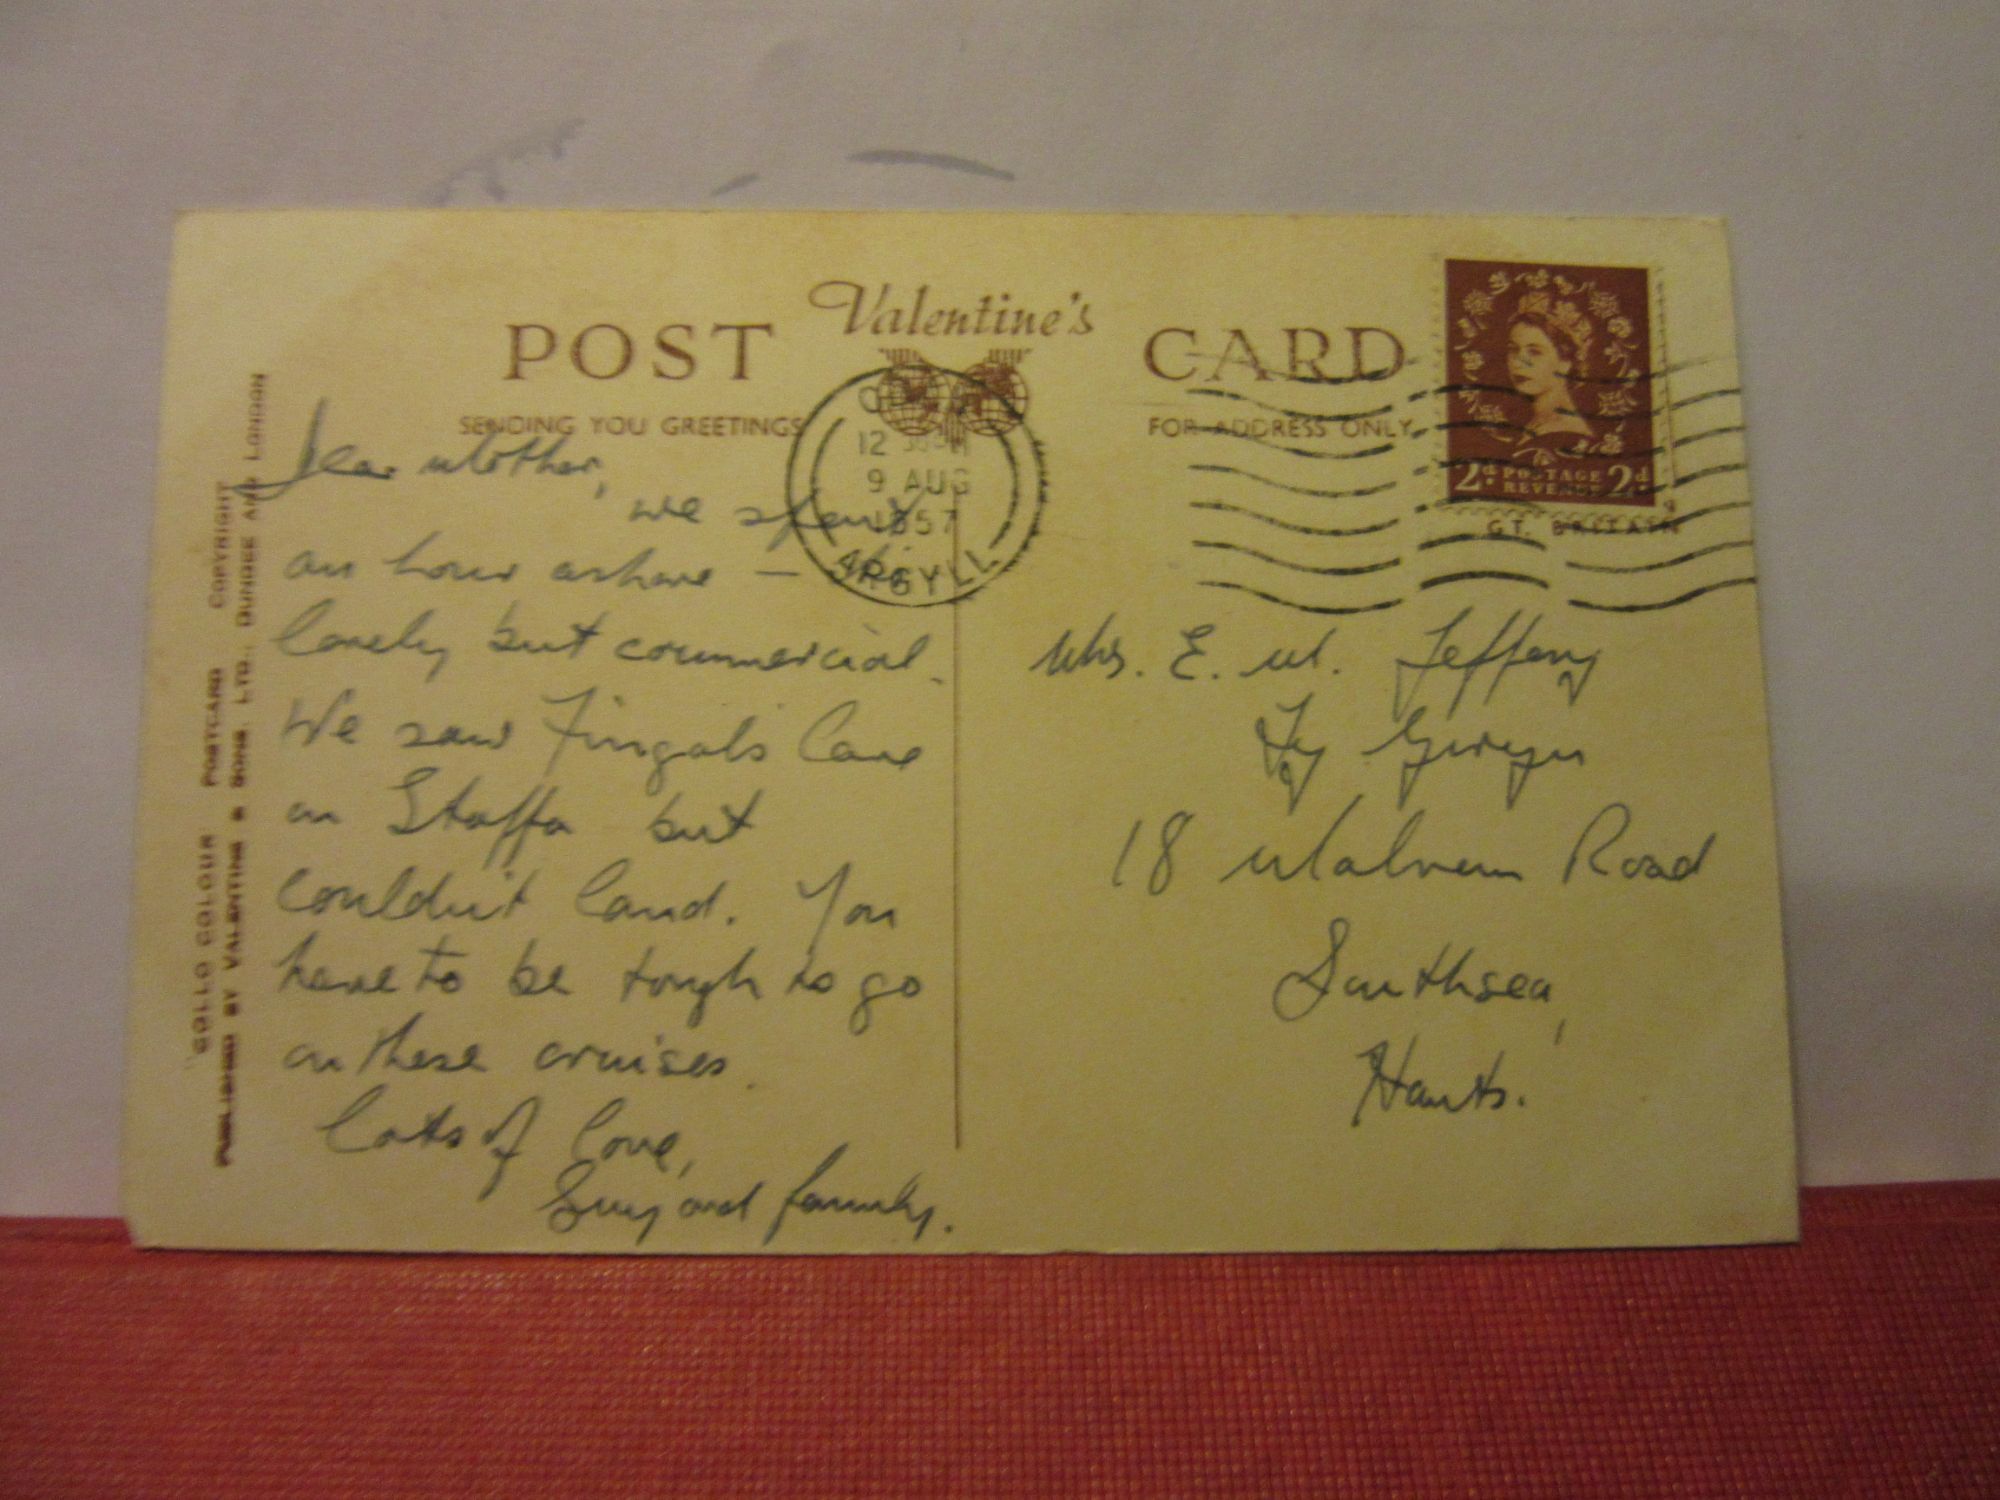 POST Valentine's CARD
SENDING YOU GREETINGS
FOR ADDRESS ONLY
12 30 PM
9 AUG
1957
ARGYLL
2d. POSTAGE REVENUE 2d.
GT. BRITAIN
"COLLO COLOUR" POSTCARD COPYRIGHT
PUBLISHED BY VALENTINE & SONS, LTD., DUNDEE AND LONDON
Dear Mother,
we spent
an hour ashore —
lovely but commercial.
We saw Fingal's Cave
on Staffa but
couldn't land. You
have to be tough to go
on these cruises.
Lots of love,
and family.
Mrs. E. M. Jeffery
Ty
18 Malvern Road
Southsea,
Hants.